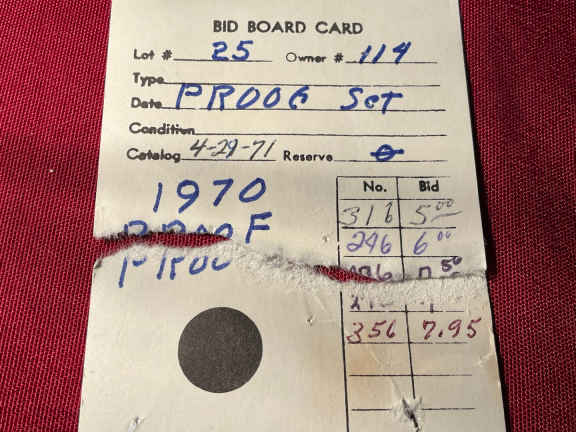 BID BOARD CARD
Lot # 25 Owner # 114
Type
Date PROOG Set
Condition
Catalog 4-29-71 Reserve 0
1970
PROOF
No. Bid
316 5.00
246 6.00
7.50
356 7.95